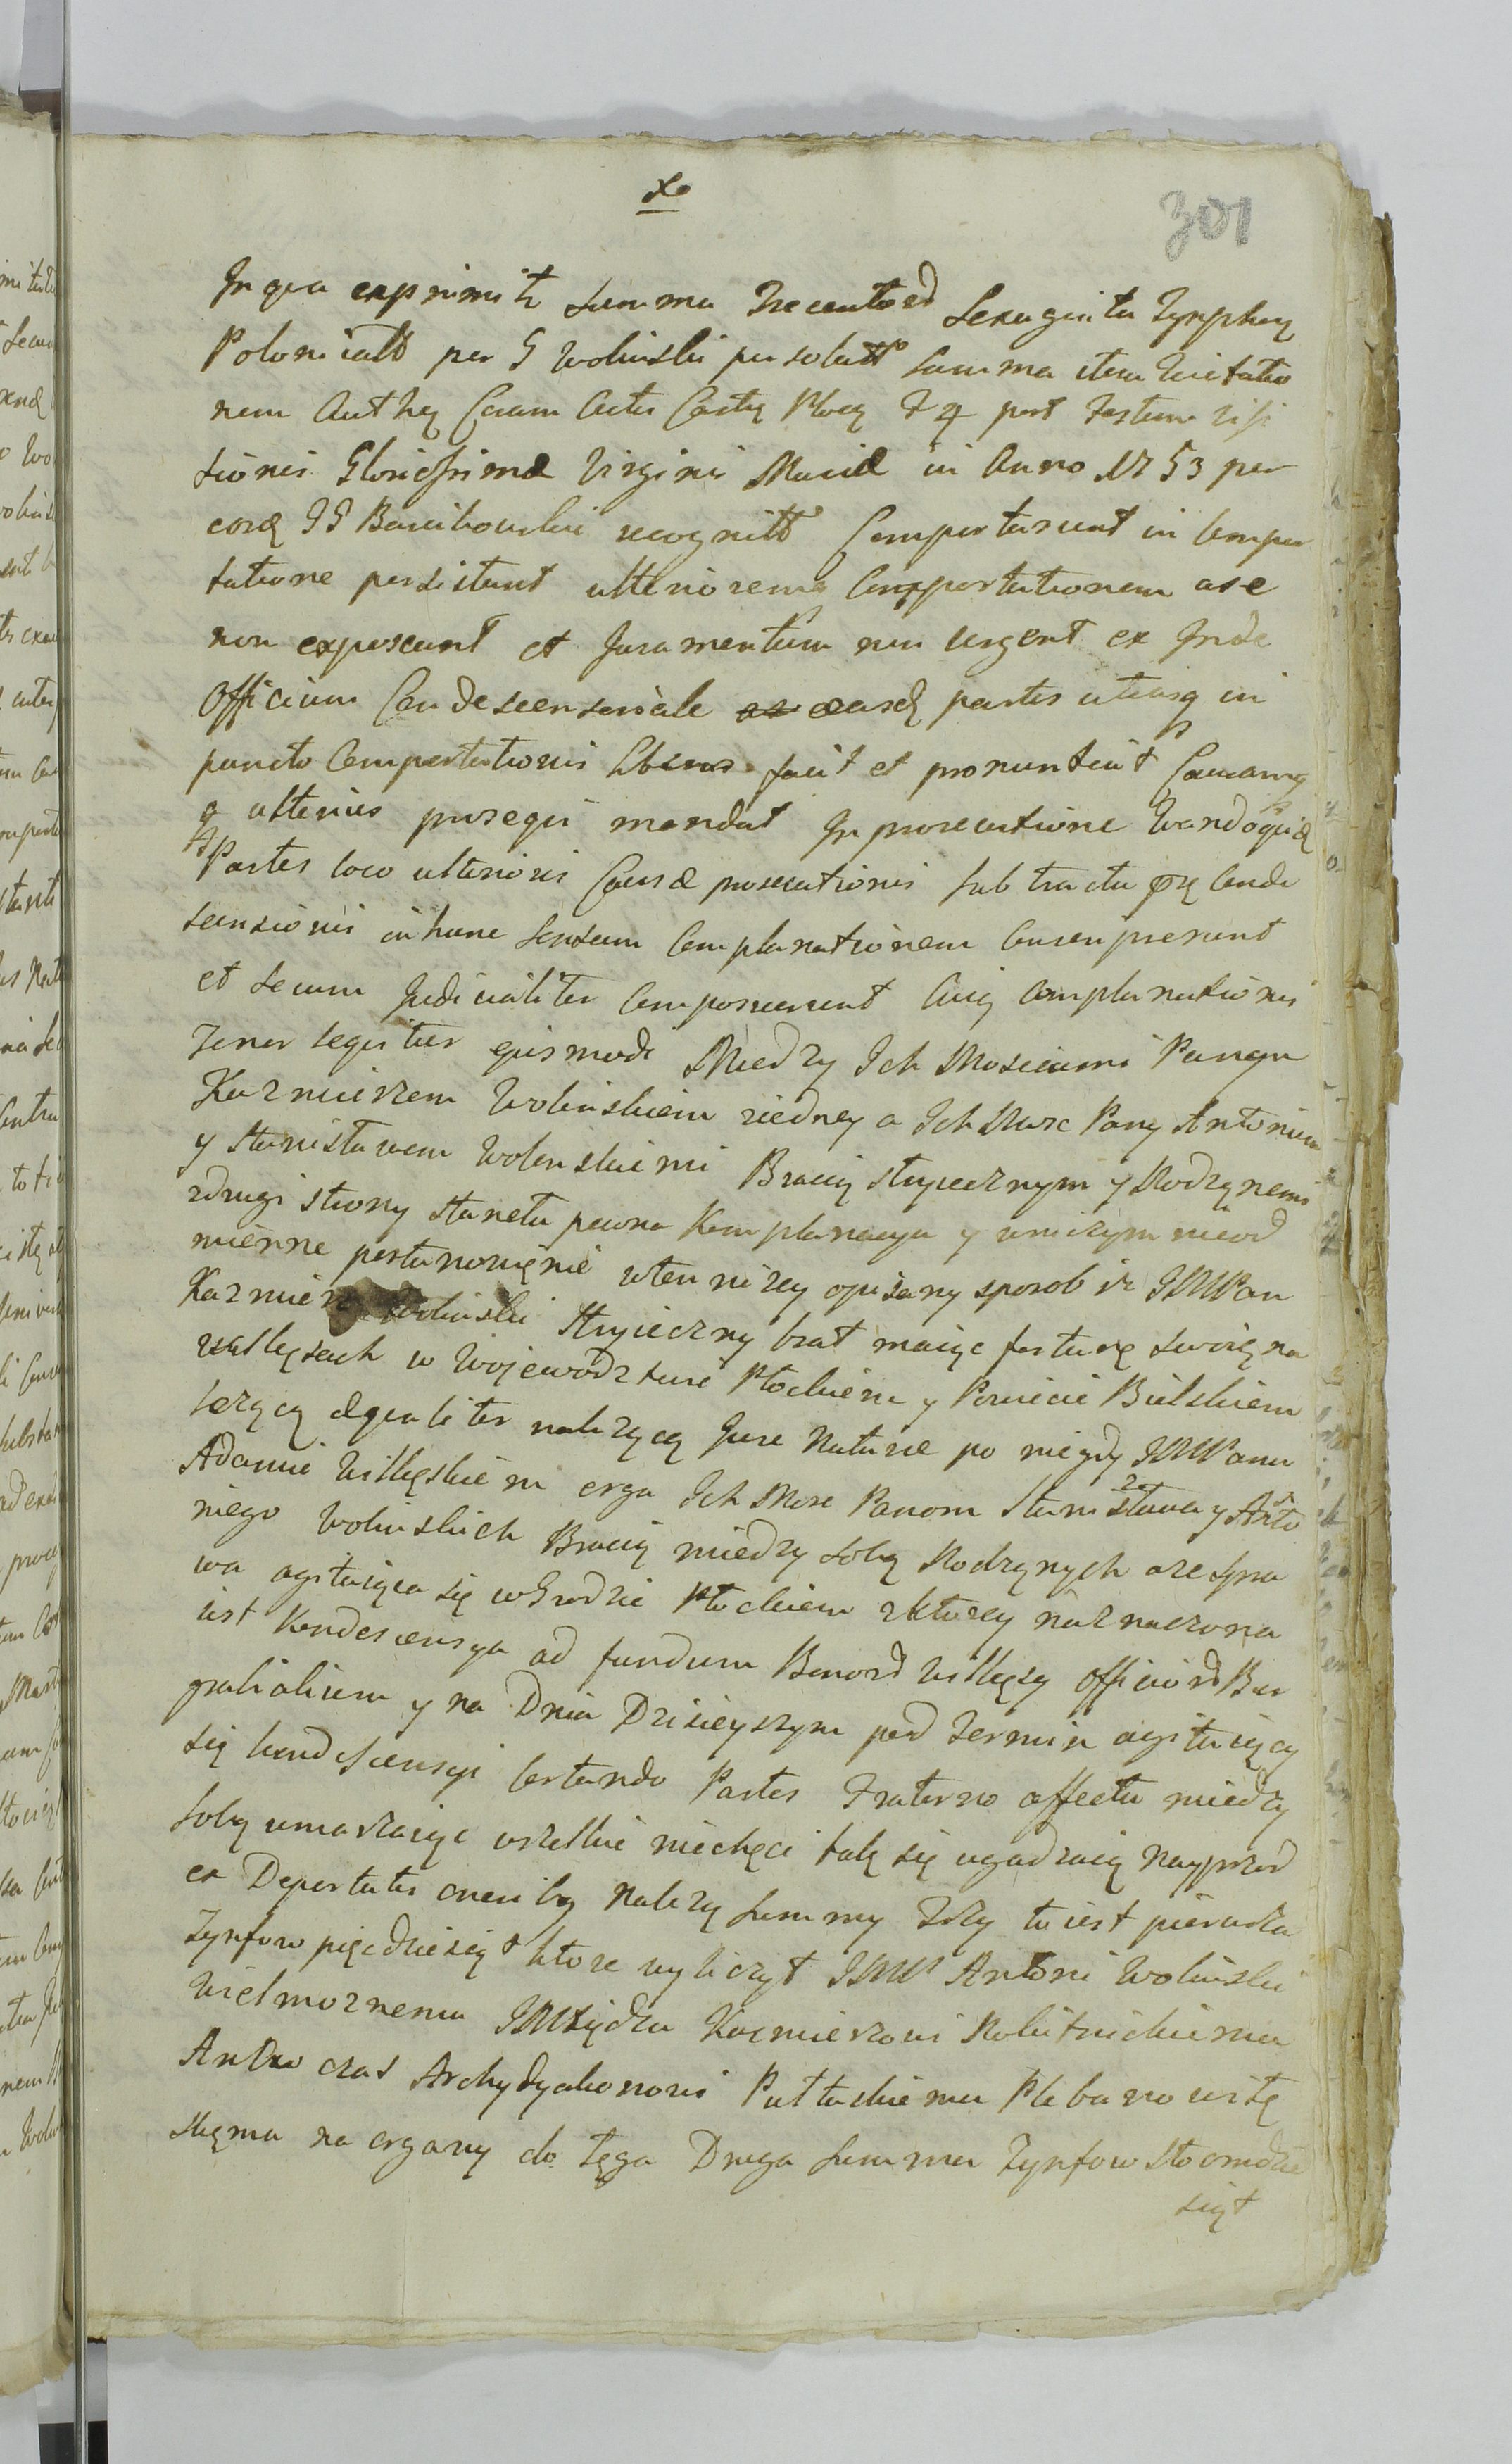 301
In qua exprimitr Summa Trecentord Sexaginta Tynphorz
Polonicall per G Wolinski persolutt Summa item
nem Authez Coram Actis Castrz Plocz F 4 post Festum Visi
tionis Gloriossimæ Virginis Mariæ in Anno 1753 per
eosd GG recognitt Comportarunt in Compor
tatione persistunt ulterioremq Comportationem a se
non exposcunt et Juramentum non urgent ex Inde
Officium Condescensoriale easd partes utrasq in
puncto Comportationis liberas facit et pronuntiat Causamq
ulterius prosequi mandat In prosecutione
Partes loco ulterioris Causæ prosecutionis sub tractu Conde
scensionis in hunc Sensum Complanationem
et Secum Judicialiter Composuerunt Cuiq Complanationis
Tenor sequitur ejusmodi Miedzy Ich Mosciami Panem
Kazmierzem Wolinskiem ziedney a Ich Mosc Pany Antonim
y Stanisławem Wolinskiemi Bracią stryiecznym y Rodzonemi
zdrugi strony staneła pewna Komplanacya y wniczym nieod
mienne postanowienie wten nizey opisany sposob iz JMPan
Kazmierz Wolinski Stryieczny brat maiąc fortunę swoię na
w Wojewodztwie Płockiem y Powiecie Bielskiem
lezącą æqualiter nalezącą Jure Naturæ po niegdy JMPanu
Adamie erga Ich Mosc Panom Stanisława y Anto
niego Wolinskich Bracią miedzy sobą Rodzonych
wa agituiąca się w Grodzie Płockiem zktorey naznaczona
iest Kondescensya ad fundum Bonord officiord Bur
grabialium y na Dniu Dzisieyszym pod Termin agituiący
się kondescensyi Certando Partes Fraterno affectu miedzy
sobą umarzaiąc wszelkie niechęci tak się ugadzaią nayprzod
ex Deportatis Summy Trzy to iest pierwsza
Tynfow pięcdziesiąt ktore wyliczył JMP Antoni Wolinski
Wielmoznemu JMXiędzu Kazmierzowi
czas Archydyakonowi Pułtuskiemu Plebanowi
na organy do tego Druga Summa Tynfow Sto
siąt